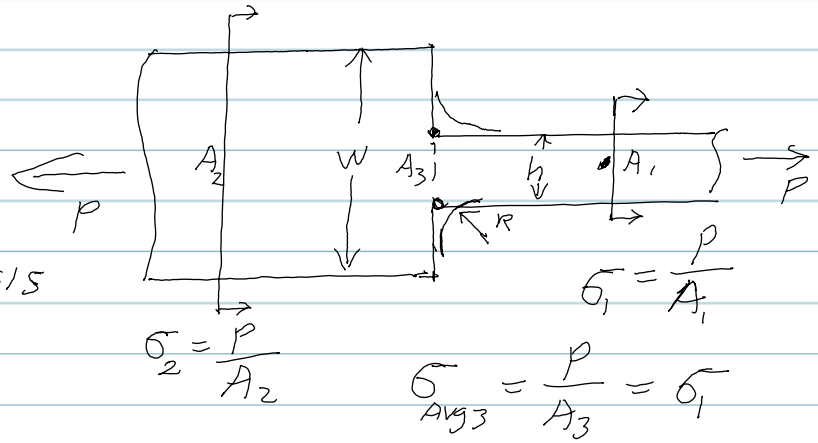 A₂ W A₃ h A₁
P P
R
σ₁ = P/A₁
σ₂ = P/A₂
σ_Avg3 = P/A₃ = σ₁